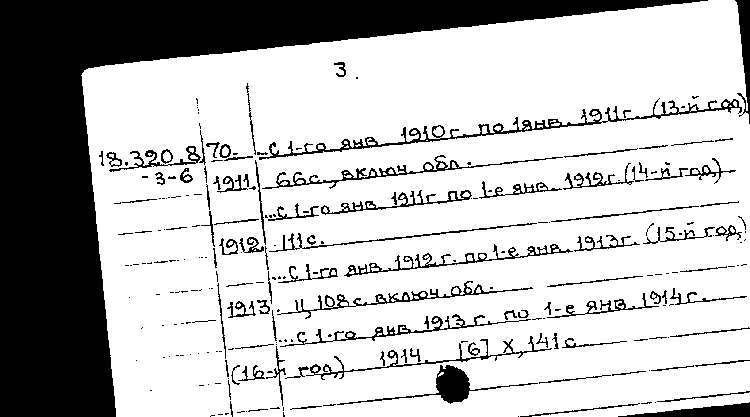 3.
18.320.8 70. ...С 1-го янв. 1910 г. по 1 янв. 1911 г. (13-й год)
-3-6 1911. 66 с., включ. обл.
...С 1-го янв. 1911 г. по 1-е янв. 1912 г. (14-й год)
1912. 111 с.
...С 1-го янв. 1912 г. по 1-е янв. 1913 г. (15-й год)
1913. II, 108 с. включ. обл.
...С 1-го янв. 1913 г. по 1-е янв. 1914 г.
(16-й год) 1914. [6], X, 141 с